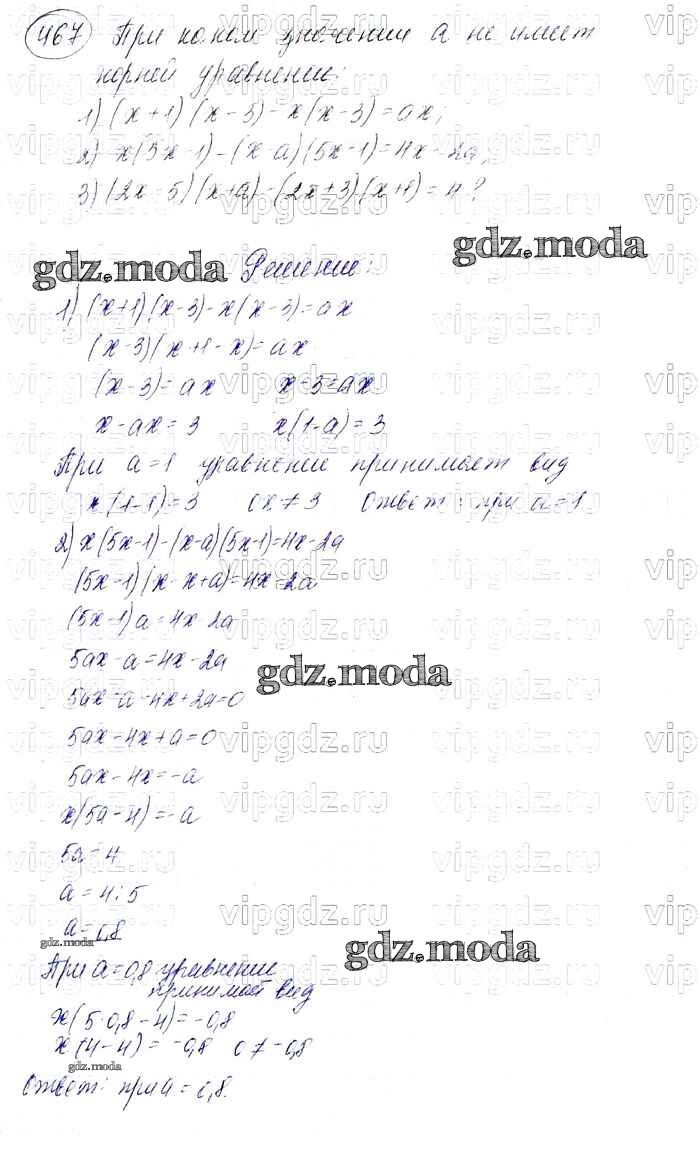 467 При каком значении a не имеет
корней уравнение:
1) (x+1)(x-3)-x(x-3)=ax;
2) x(5x-1)-(x-a)(5x-1)=4x-2a;
3) (2x-5)(x+a)-(2x+3)(x+1)=4?
gdz.moda Решение: gdz.moda
1) (x+1)(x-3)-x(x-3)=ax
(x-3)(x+1-x)=ax
(x-3)=ax x-3=ax
x-ax=3 x(1-a)=3
При a=1 уравнение принимает вид
x(1-1)=3 0x≠3 Ответ: при a=1
2) x(5x-1)-(x-a)(5x-1)=4x-2a
(5x-1)(x-x+a)=4x-2a
(5x-1)a=4x-2a
5ax-a=4x-2a
gdz.moda
5ax-a-4x+2a=0
5ax-4x+a=0
5ax-4x=-a
x(5a-4)=-a
5a=4
a=4:5
a=0,8
gdz.moda gdz.moda
При a=0,8 уравнение
принимает вид
x(5·0,8-4)=-0,8
x(4-4)=-0,8 0≠-0,8
gdz.moda
Ответ: при a=0,8.